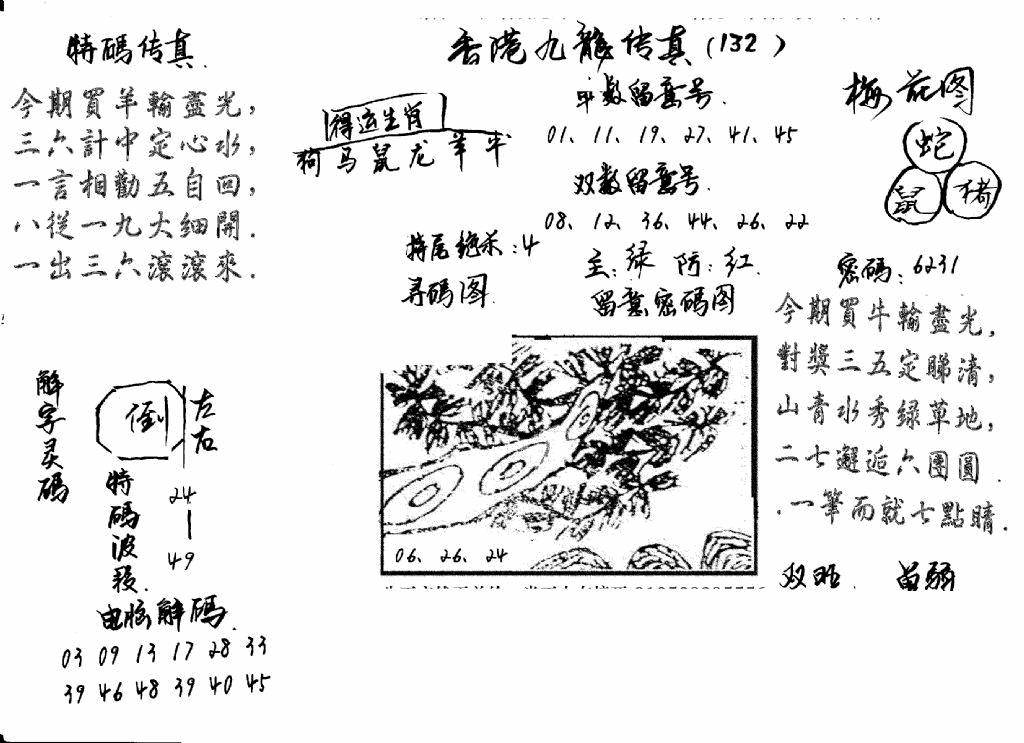 特碼传真.
今期買羊輸盡光,
三六計中定心水,
一言相勸五自回,
八從一九大细開.
一出三六滾滾來.
香港九龍传真(132)
得运生肖
狗马鼠龙羊牛
单数留意号.
01、11、19、27、41、45
双数留意号.
08、12、36、44、26、22
特尾绝杀:4
主:绿 防:红.
寻碼图.
留意密碼图
梅花图
蛇
鼠
猪
密碼:6231
今期買牛輸盡光,
對獎三五定睇清,
山青水秀綠草地,
二七邂逅六團圓.
一筆而就七點睛.
双旺.
06、26、24
解字灵碼
倒
左右
特碼波段.
24
|
49
电脑解碼.
03 09 13 17 28 33
39 46 48 39 40 45